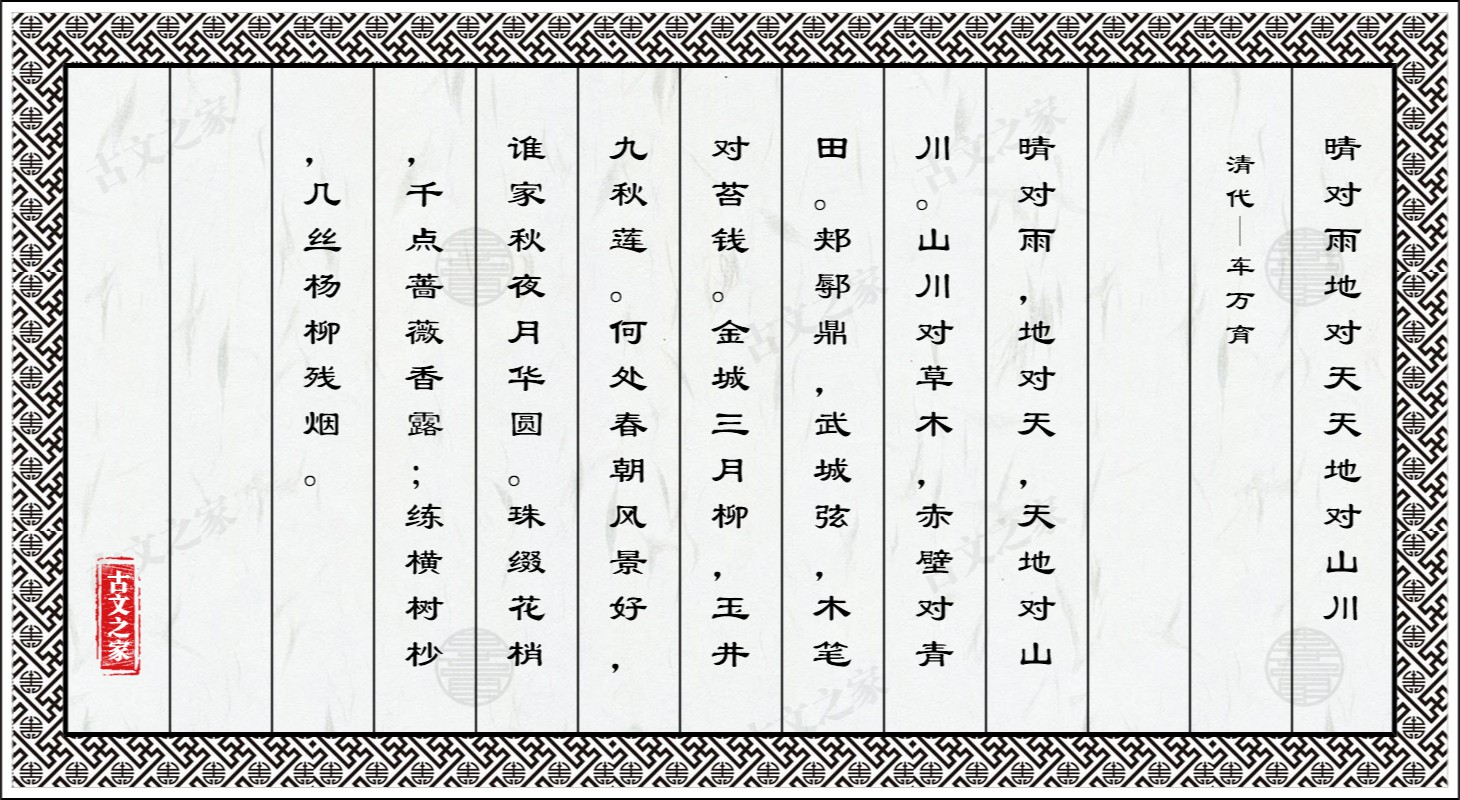 晴对雨地对天天地对山川
清代—车万育
晴对雨，地对天，天地对山
川。山川对草木，赤壁对青
田。郏鄏鼎，武城弦，木笔
对苔钱。金城三月柳，玉井
九秋莲。何处春朝风景好，
谁家秋夜月华圆。珠缀花梢
，千点蔷薇香露；练横树杪
，几丝杨柳残烟。
古文之家